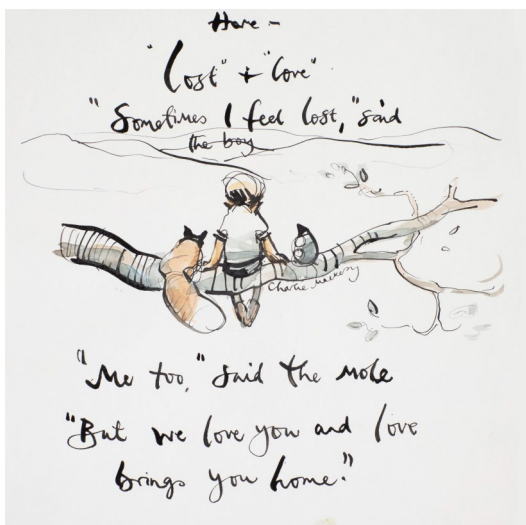 Have -
"Lost" + "Love"
"Sometimes I feel lost," said
the boy
Charlie Mackesy
"Me too," said the mole
"But we love you and love
brings you home."